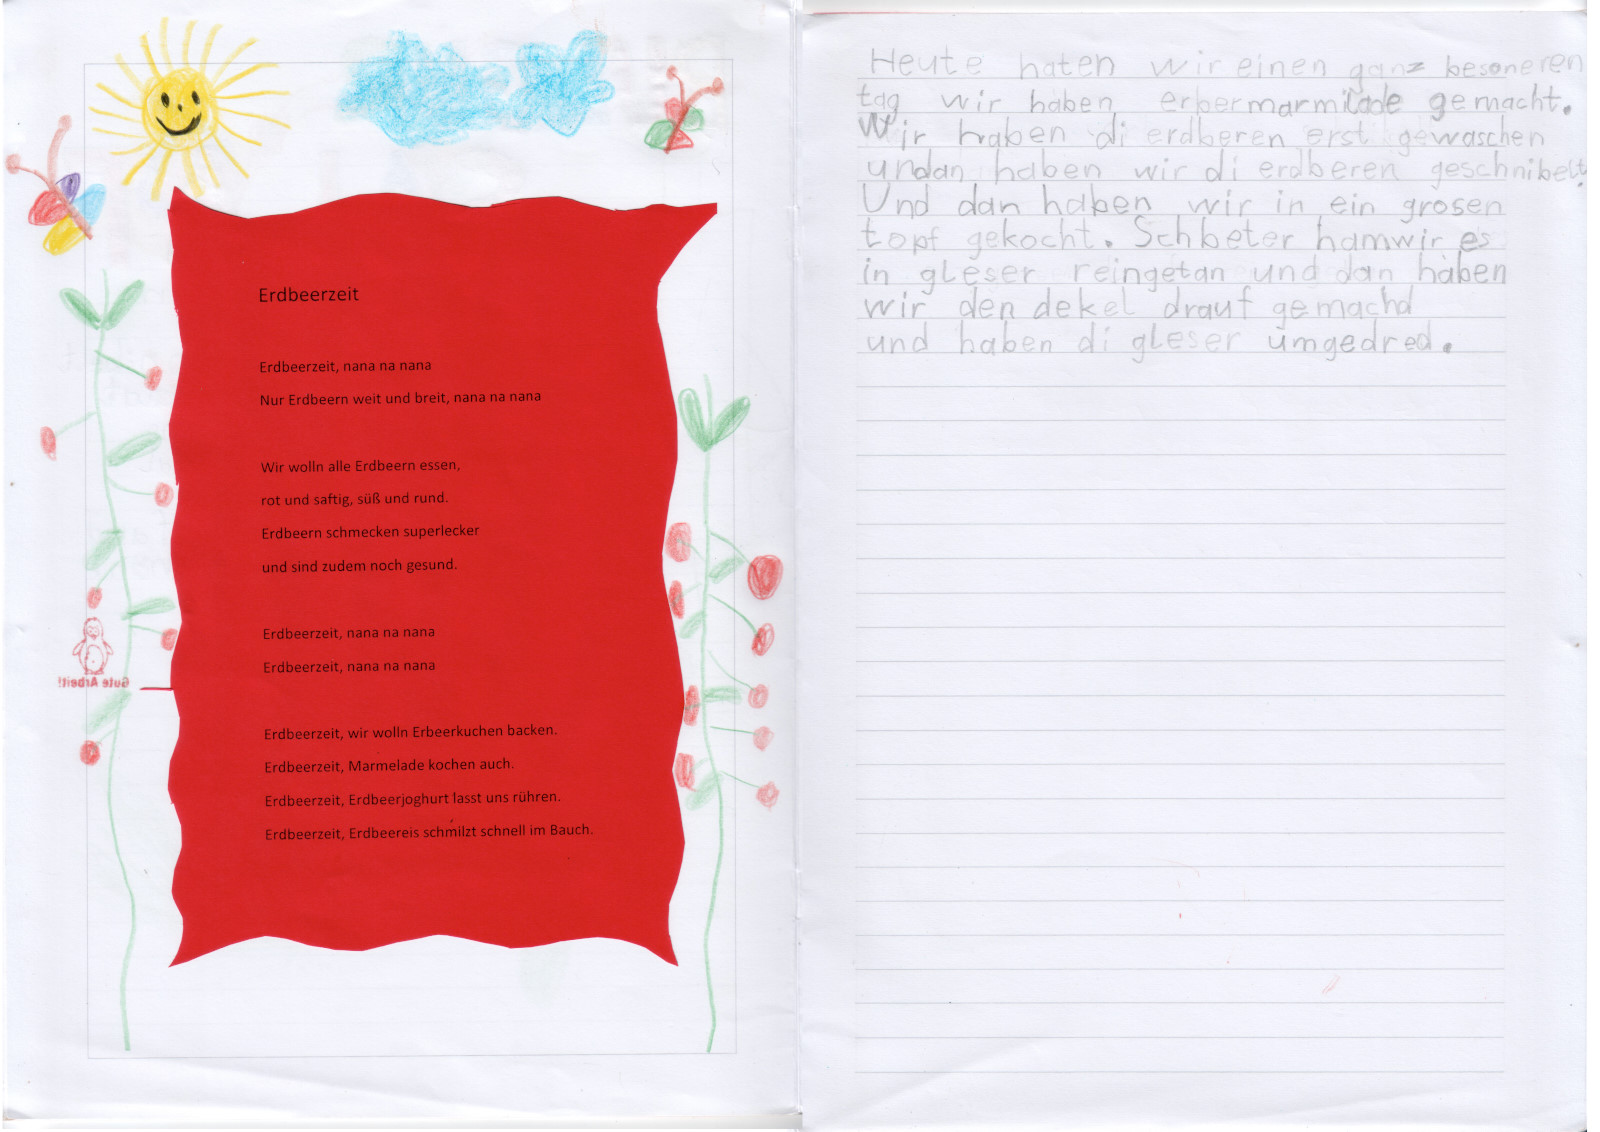 Erdbeerzeit
Erdbeerzeit, nana na nana
Nur Erdbeern weit und breit, nana na nana
Wir wolln alle Erdbeern essen,
rot und saftig, süß und rund.
Erdbeern schmecken superlecker
und sind zudem noch gesund.
Erdbeerzeit, nana na nana
Erdbeerzeit, nana na nana
Erdbeerzeit, wir wolln Erbeerkuchen backen.
Erdbeerzeit, Marmelade kochen auch.
Erdbeerzeit, Erdbeerjoghurt lasst uns rühren.
Erdbeerzeit, Erdbeereis schmilzt schnell im Bauch.
Gute Arbeit!
Heute haten wir einen ganz besoneren
tag wir haben erbermarmilade gemacht.
Wir haben di erdberen erst gewaschen
undan haben wir di erdberen geschnibelt.
Und dan haben wir in ein grosen
topf gekocht. Schbeter hamwir es
in gleser reingetan und dan haben
wir den dekel drauf gemachd
und haben di gleser umgedred.